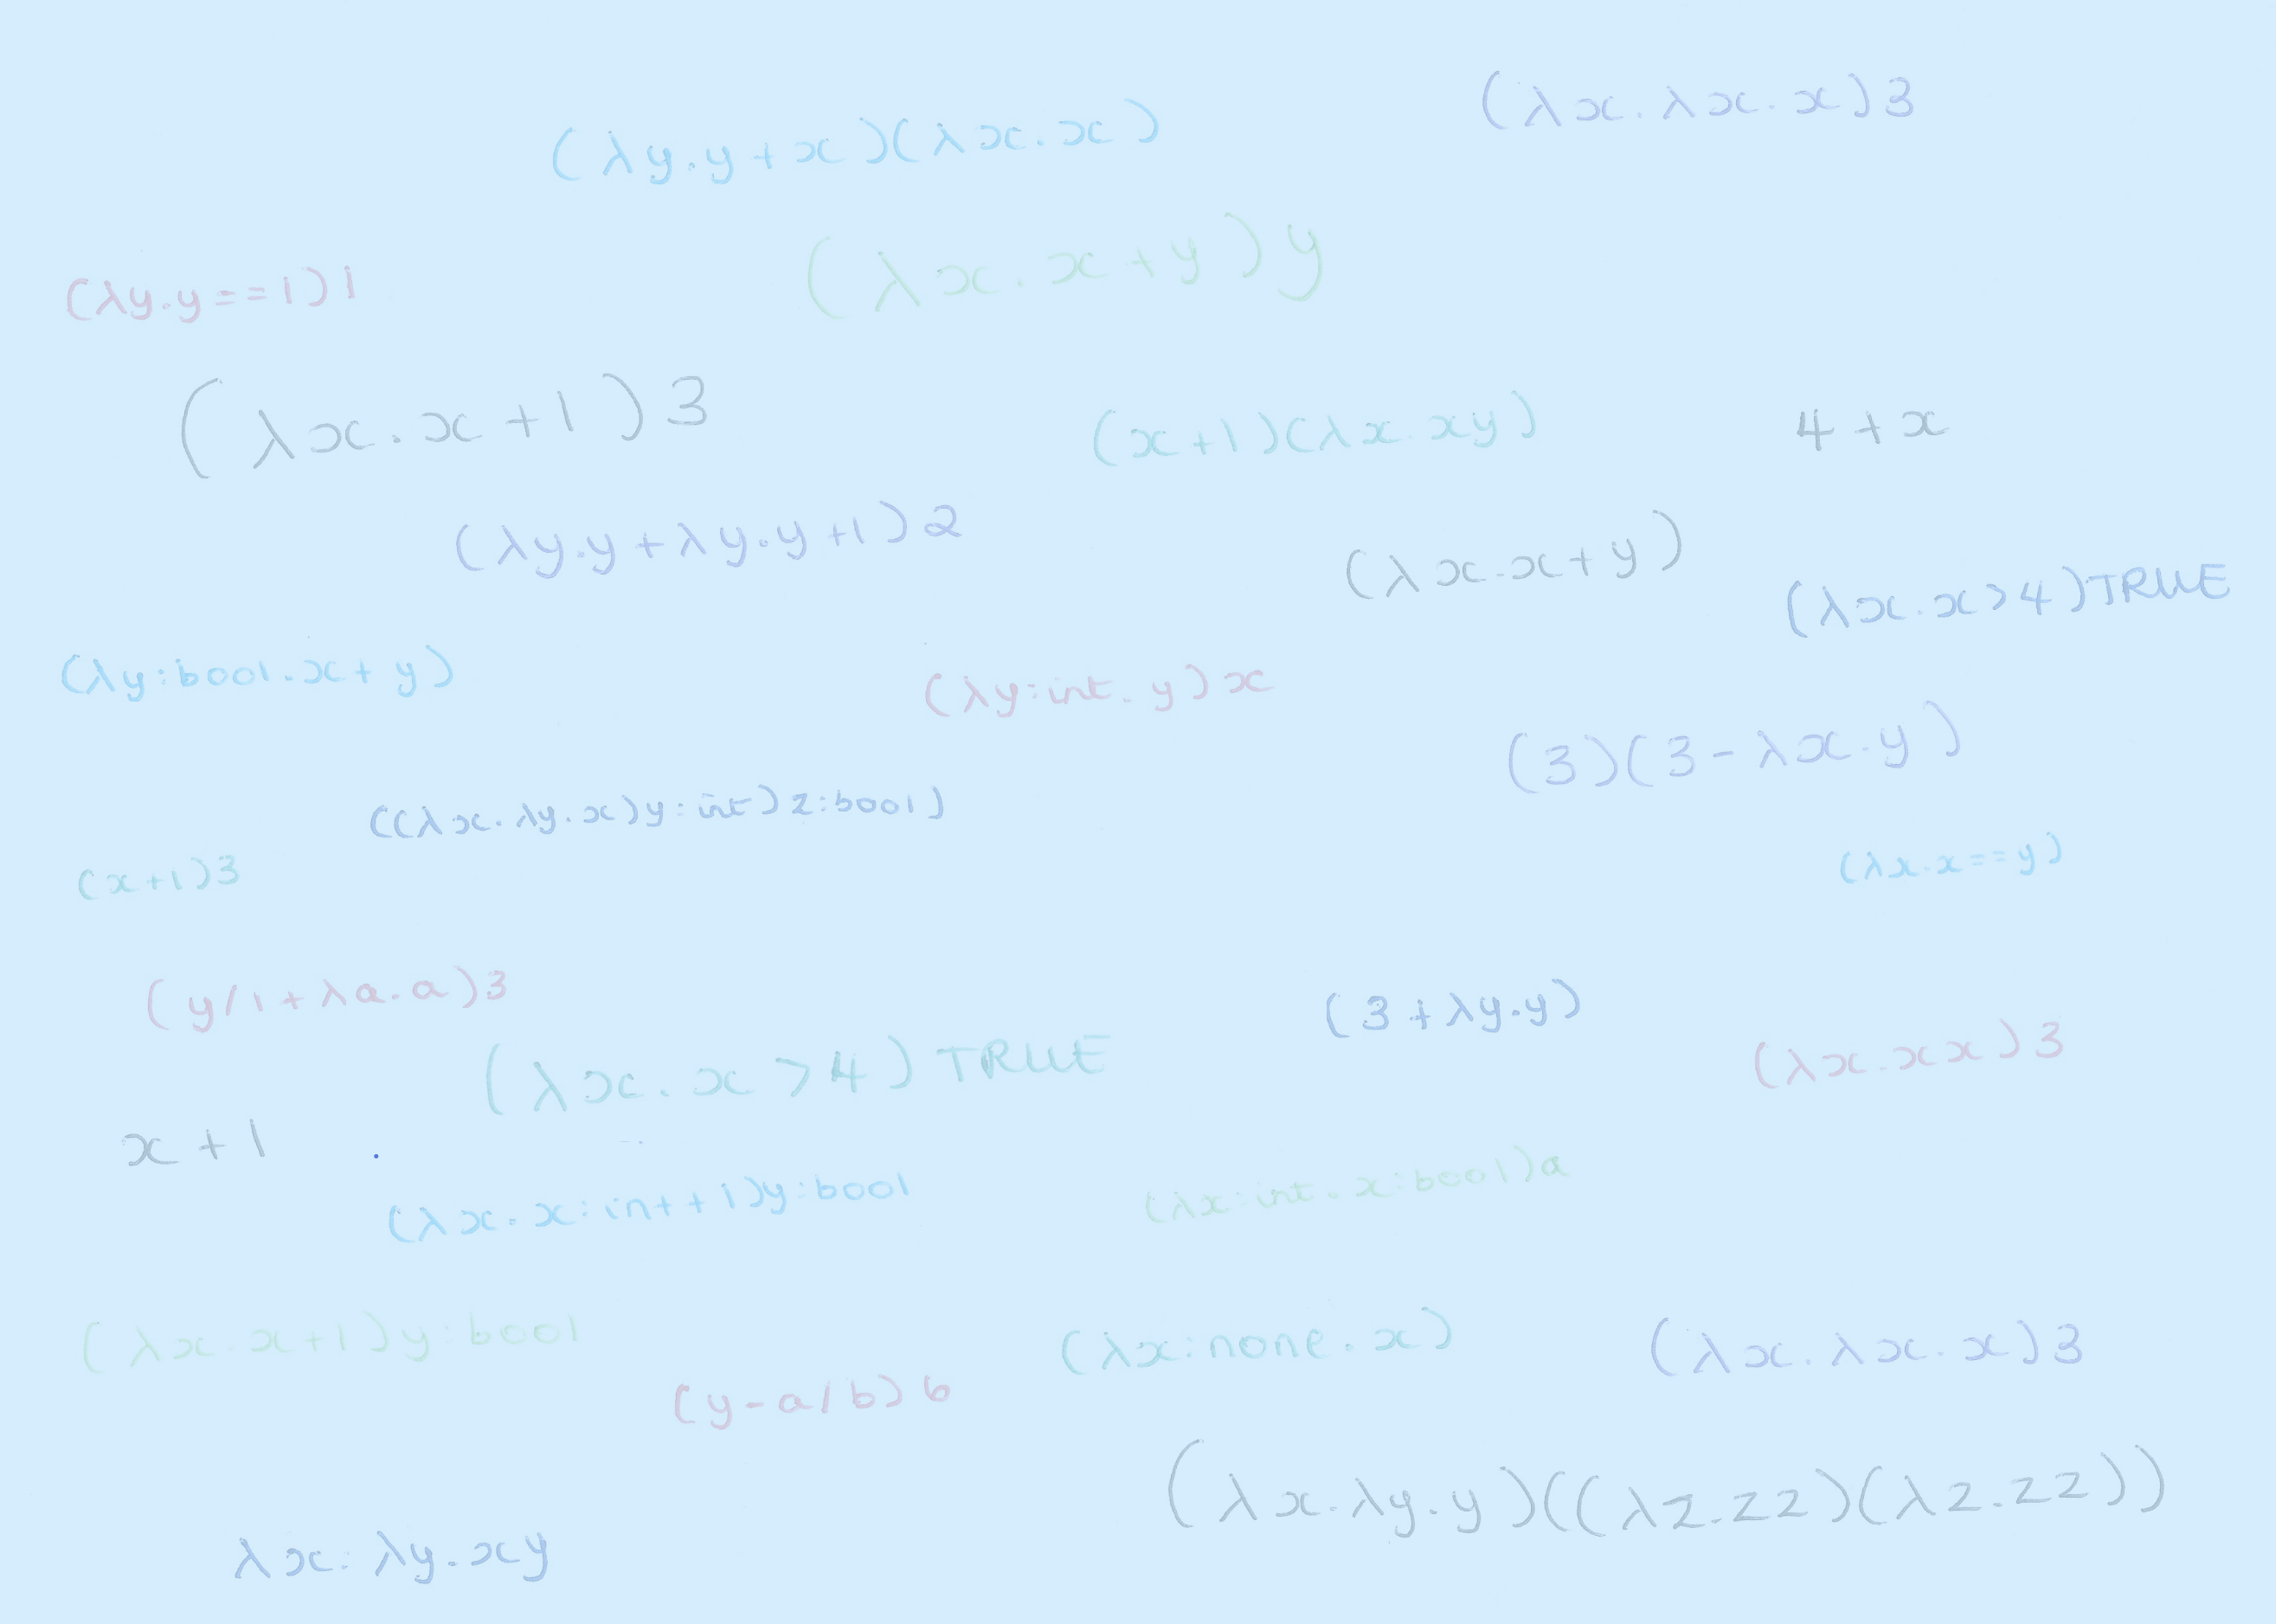 (λx.λx.x)3
(λy.y+x)(λx.x)
(λx.x+y)y
(λy.y==1)1
(λx.x+1)3
(x+1)(λx.xy)
4+x
(λy.y+λy.y+1)2
(λx.x+y)
(λx.x>4)TRUE
(λy:bool.x+y)
(λy:int.y)x
(3)(3-λx.y)
((λx.λy.x)y:int)z:bool)
(x+1)3
(λx.x==y)
(y/1+λa.a)3
(3+λy.y)
(λx.x>4)TRUE
(λx.xx)3
x+1
(λx.x:int+1)y:bool
(λx:int.x:bool)a
(λx.x+1)y:bool
(λx:none.x)
(λx.λx.x)3
(y-a/b)6
(λx.λy.y)((λz.zz)(λz.zz))
λx.λy.xy